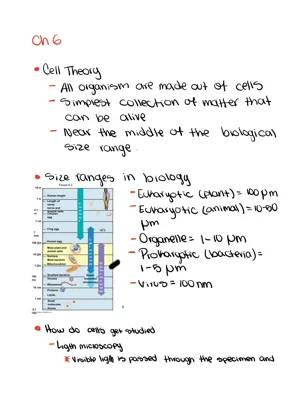 Ch 6
• Cell Theory
- All organism are made out of cells
- Simplest collection of matter that
can be alive
- Near the middle of the biological
size range.
• Size ranges in biology
- Eukaryotic (plant) = 100 μm
- Eukaryotic (animal) = 10-50
μm
- Organelle = 1-10 μm
- Prokaryotic (bacteria) =
1-5 μm
- Virus = 100 nm
Human height
Length of
Frog egg
Human egg
• How do cells get studied
- Ligth microscopy
* Visible light is passed through the specimen and